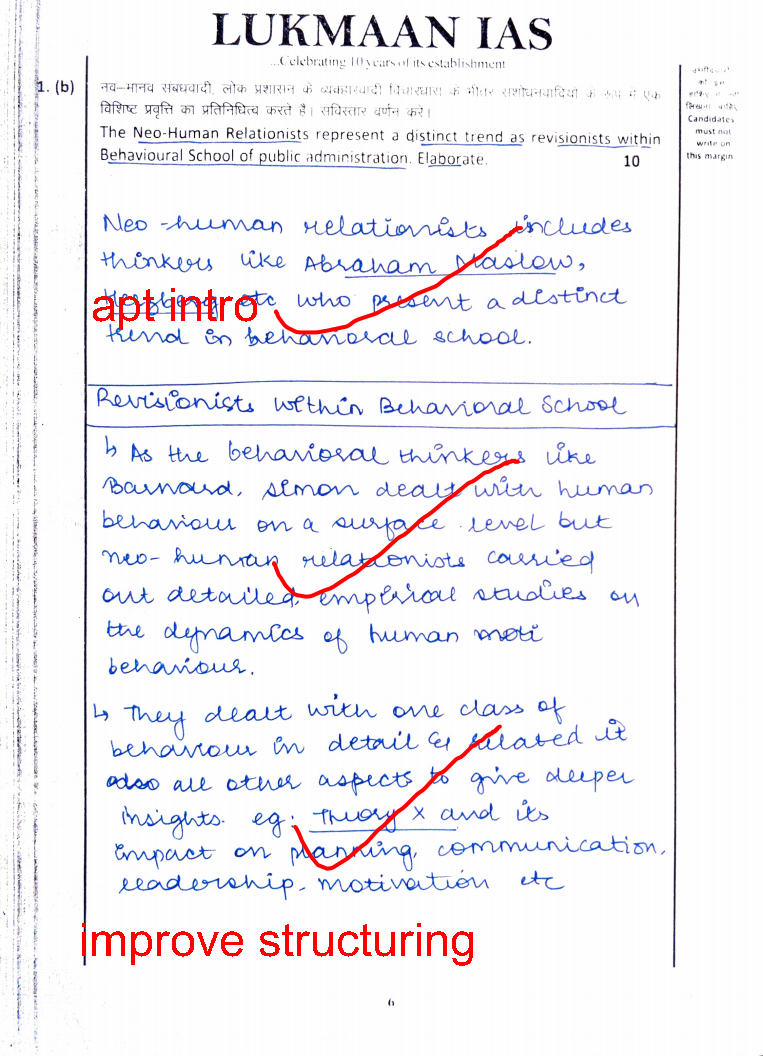 LUKMAAN IAS
...Celebrating 10 years of its establishment
1. (b) नव-मानव संबंधवादी, लोक प्रशासन के व्यवहारवादी विचारधारा के भीतर संशोधनवादियों के रूप में एक
विशिष्ट प्रवृत्ति का प्रतिनिधित्व करते है। सविस्तार वर्णन करे।
The Neo-Human Relationists represent a distinct trend as revisionists within
Behavioural School of public administration. Elaborate. 10
Candidates
must not
write on
this margin
Neo-human relationists includes
thinkers like Abraham Maslow,
Herzberg etc who present a distinct
apt intro
trend in behavioral school.
Revisionists within Behavioral School
↳ As the behavioral thinkers like
Barnard, Simon dealt with human
behaviour on a surface level but
neo-human relationists carried
out detailed, empirical studies on
the dynamics of human moti
behaviour.
↳ They dealt with one class of
behaviour in detail & related it
also all other aspects to give deeper
insights. eg. Theory X and its
impact on planning, communication,
leadership, motivation etc
improve structuring
6